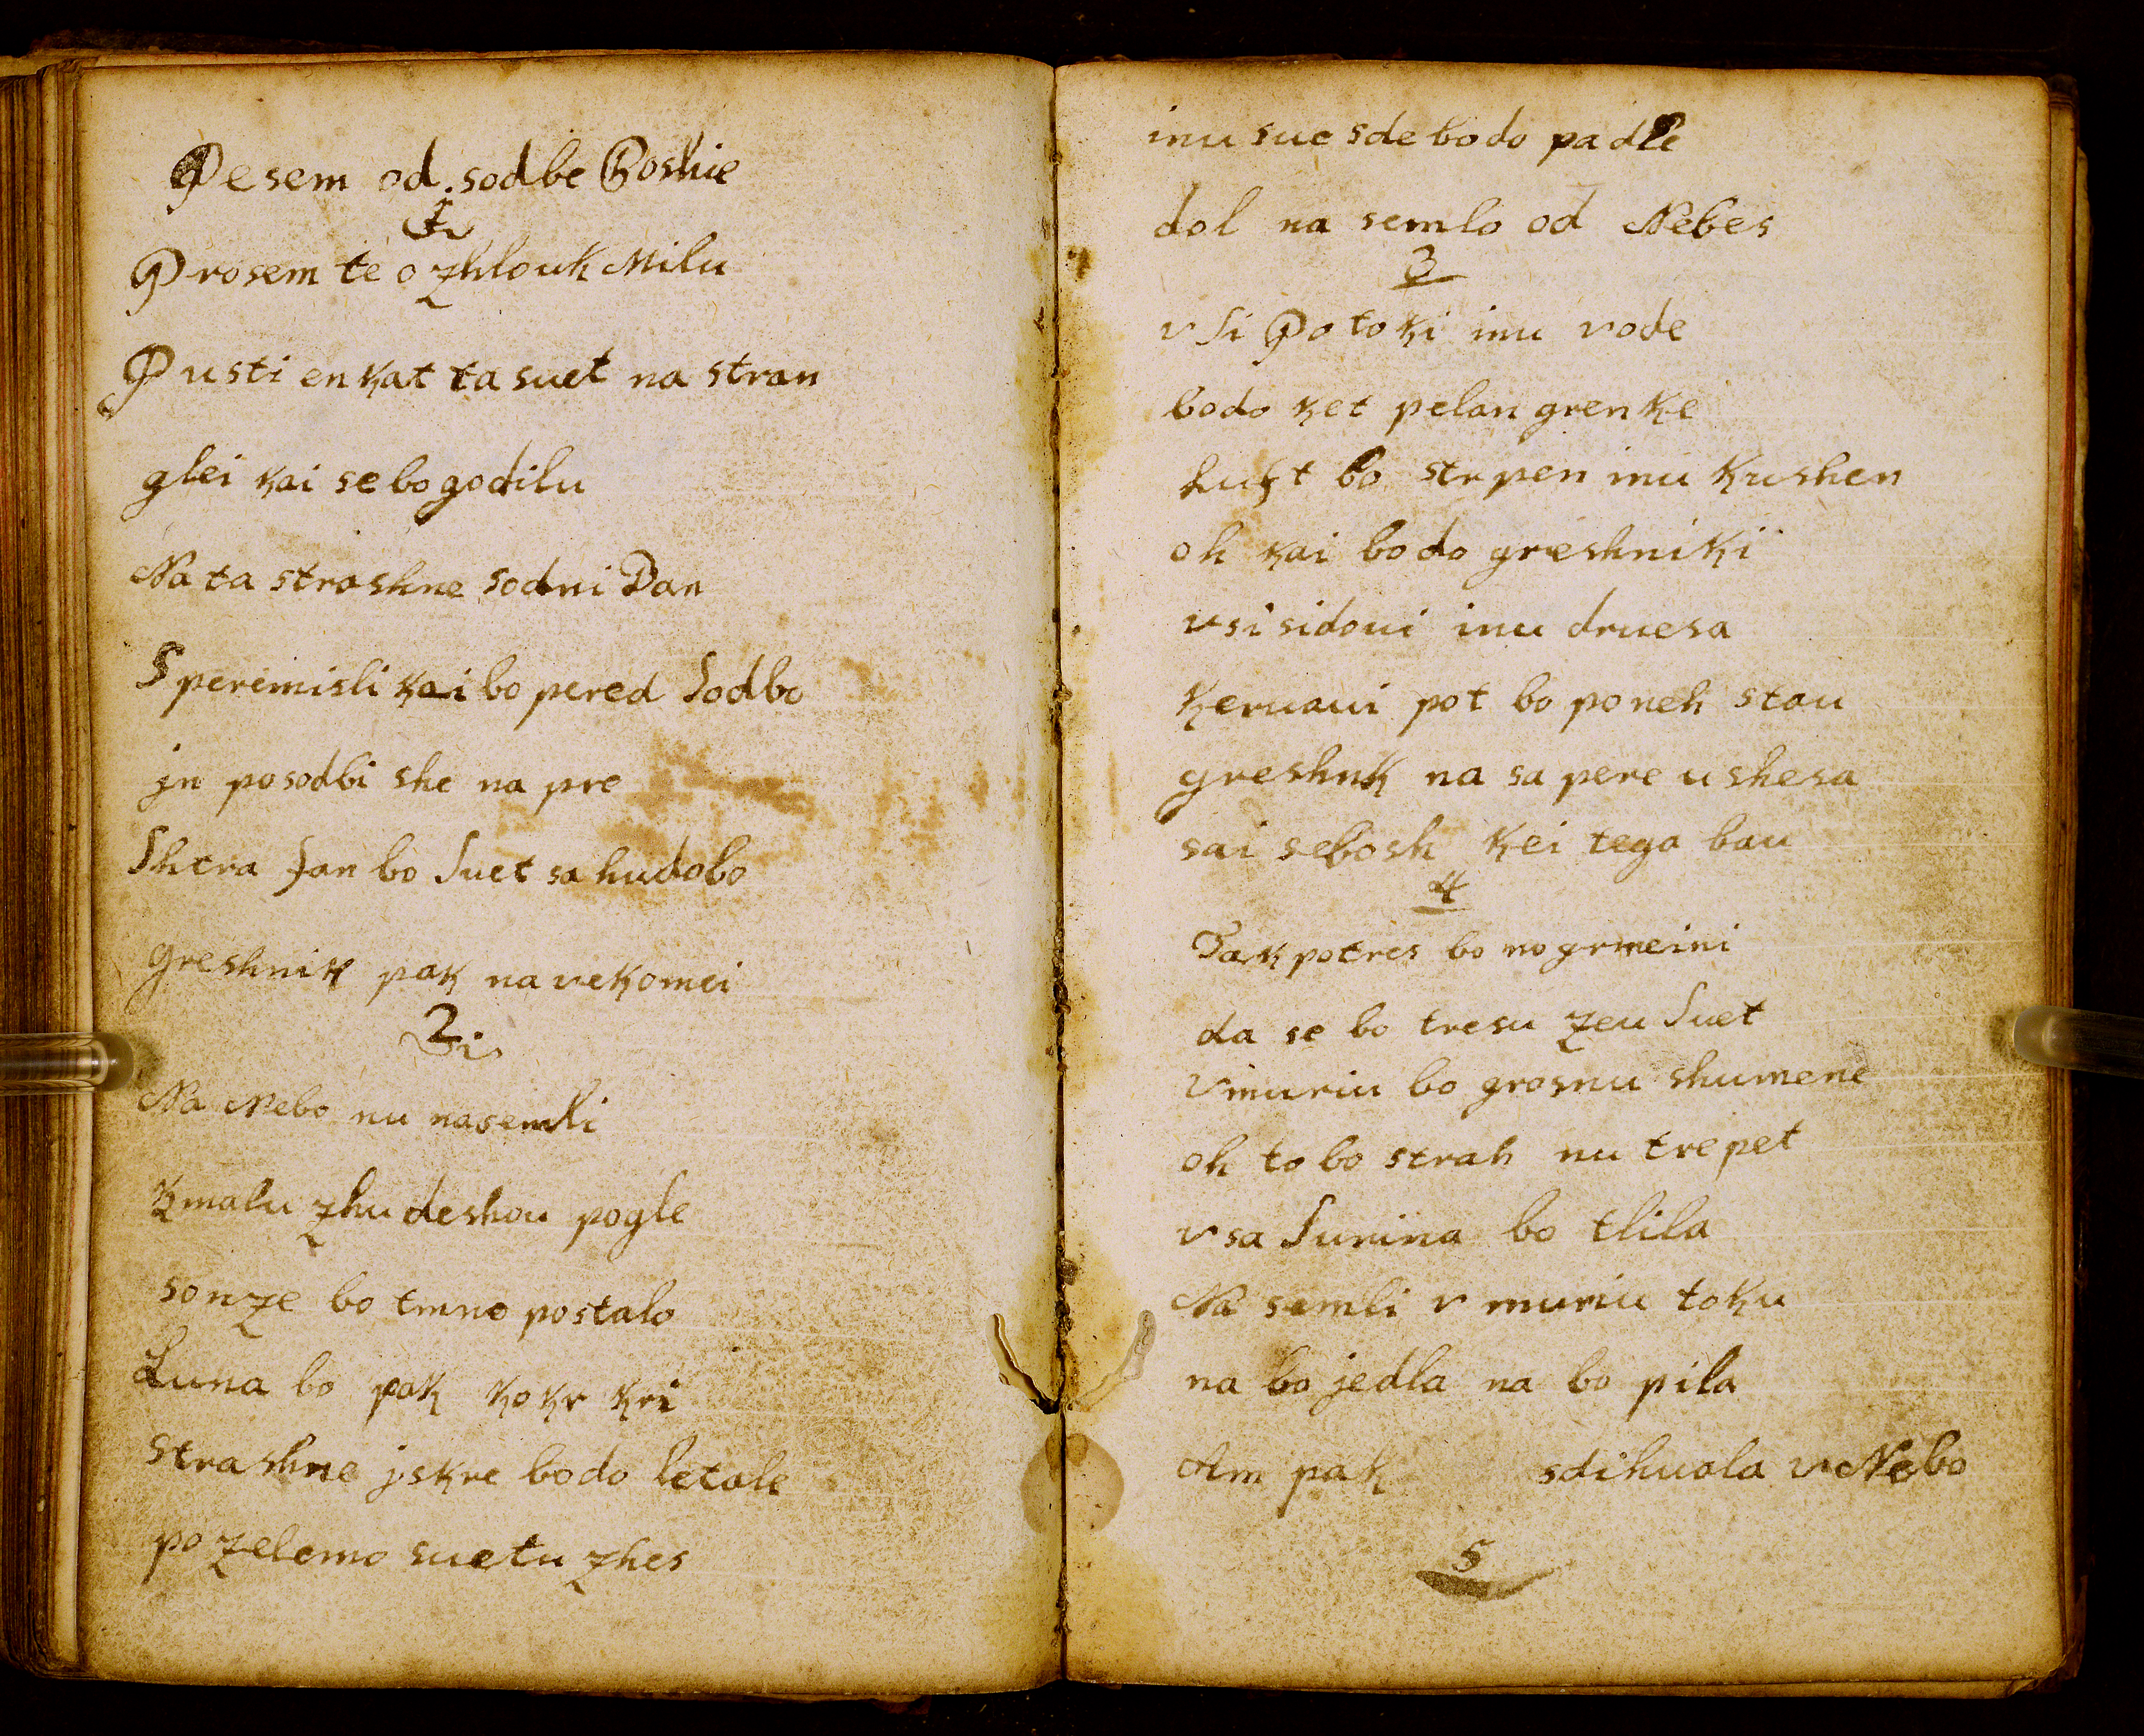 Pesem od. sodbe Boshie
1
Prosem te o zhlouk Milu
Pusti enkat ta suet na stran
glei kai se bo godilu
Na ta strashne sodni Dan
Speremisli kai bo pered sodbo
jn posodbi she na pre
Shtra fan bo suet sa hudobo
greshnik pak na vekomei
2.
Na Nebo nu nasemli
kmalu zhudeshou pogle
sonze bo tmno postalo
Luna bo pak kokr kri
strashne jskre bodo letale
po zelemo suetu zhes
inu suesde bodo padle
dol na semlo od Nebes
3
vsi Potoki inu vode
bodo ket pelan grenke
Luft bo strpen inu kushen
oh kai bodo greshniki
vsi sidoui inu druesa
keruaui pot bo po neh stau
greshnk na sa pere ushesa
sai se bosh kei tega bau
4
Tak potres bo no grmeini
da se bo tresu zeu suet
v muriu bo grosnu shumene
oh to bo strah nu trepet
vsa surina bo tlila
Na semli v muriu toku
na bo jedla na bo pila
Am pak sdihuala v Nebo
5